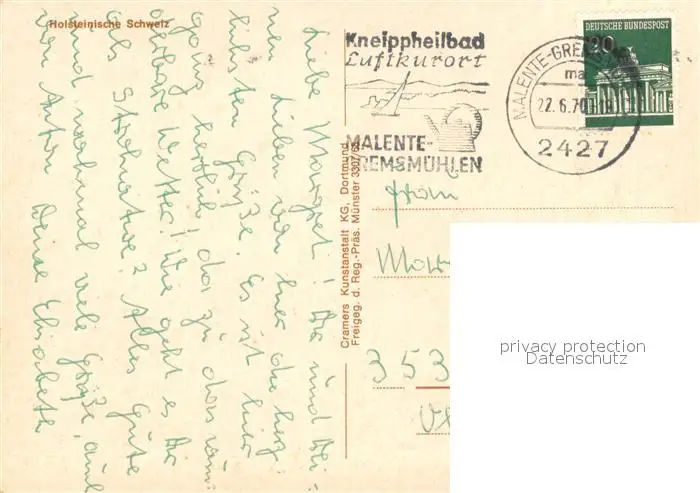 Holsteinische Schweiz
Liebe Margret! Dir und Dei-
nen Lieben von hier die herz-
lichsten Grüße. Es ist hier
ganz herrlich, dazu das wun-
derbare Wetter! Wie geht es Dir
als Strohwitwe? Alles Gute
und nochmal viele Grüße, auch
von Anton Deine Elisabeth
Cramers Kunstanstalt KG, Dortmund
Freigeg. d. Reg.-Präs. Münster 3307/65
Kneippheilbad
Luftkurort
MALENTE-
GREMSMÜHLEN
MALENTE-GREMSMÜHLEN
22.6.70
2427
DEUTSCHE BUNDESPOST
20
Frau
353
privacy protection
Datenschutz